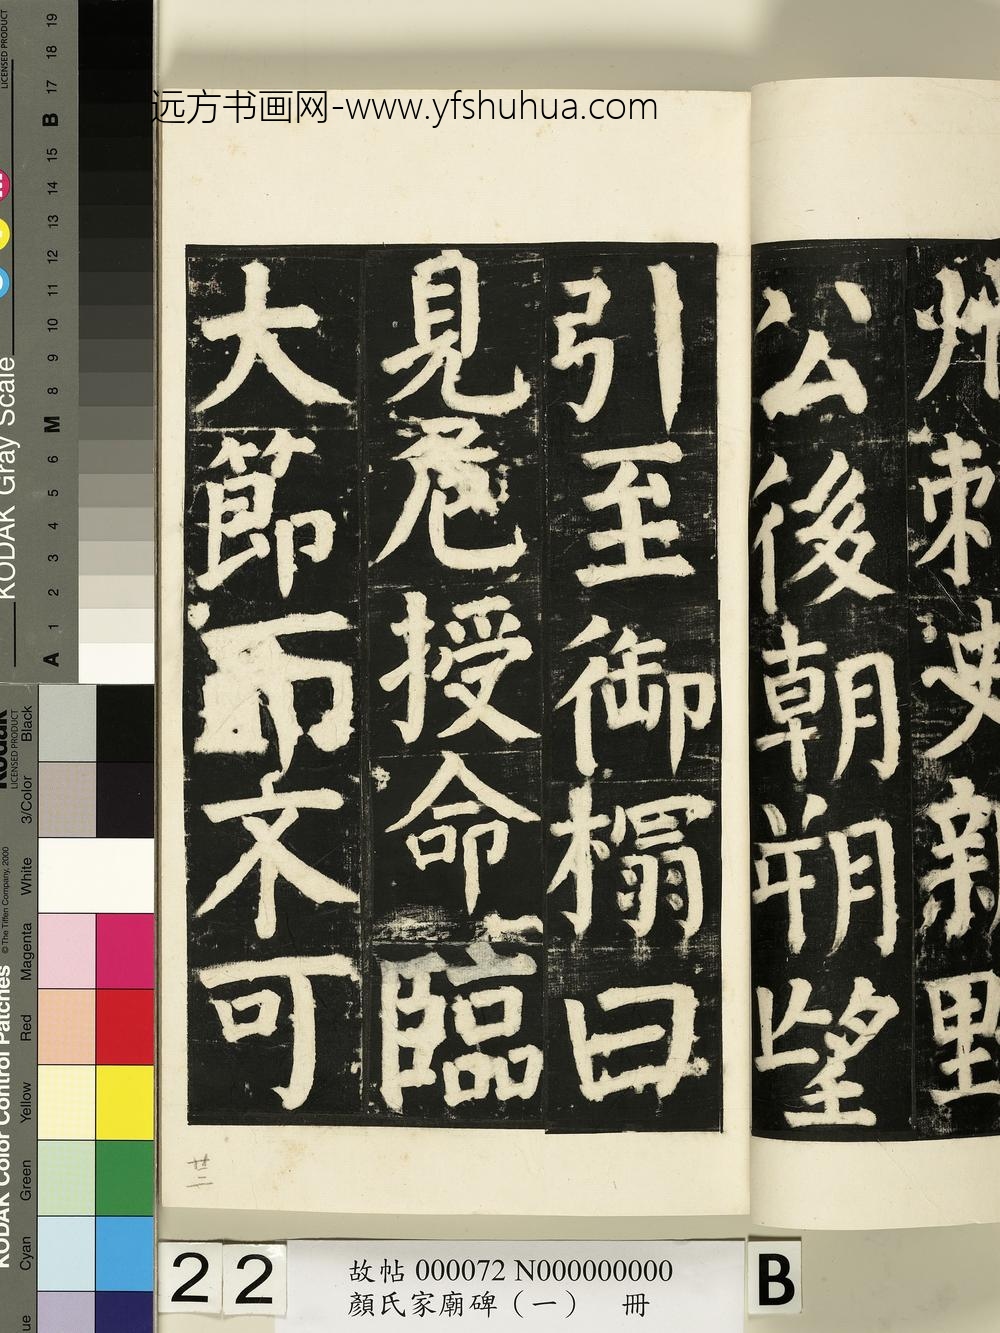 远方书画网-www.yfshuhua.com
州刺史新野
公後朝朔望
引至御榻曰
見危授命臨
大節而不可
廿二
22
故帖 000072 N000000000
顏氏家廟碑（一） 冊
B
KODAK Gray Scale
LICENSED PRODUCT
A 1 2 3 4 5 6 M 8 9 10 11 12 13 14 15 B 17 18 19
KODAK Color Control Patches
© The Tiffen Company, 2000
Kodak
LICENSED PRODUCT
Cyan Green Yellow Red Magenta White 3/Color Black